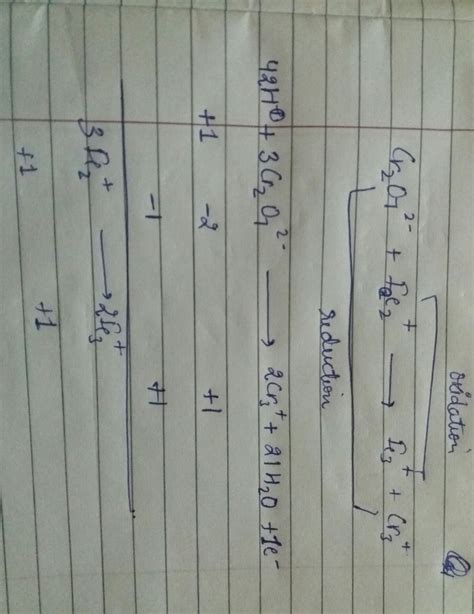 oxidation
Cr₂O₇²⁻ + Fe₂⁺ ⟶ Fe₃⁺ + Cr₃⁺
reduction
42H⊕ + 3Cr₂O₇²⁻ ⟶ 2Cr₃⁺ + 21H₂O + 1e⁻
+1 -2 +1
-1 +1
3Fe₂⁺ ⟶ 2Fe₃⁺
+1 +1